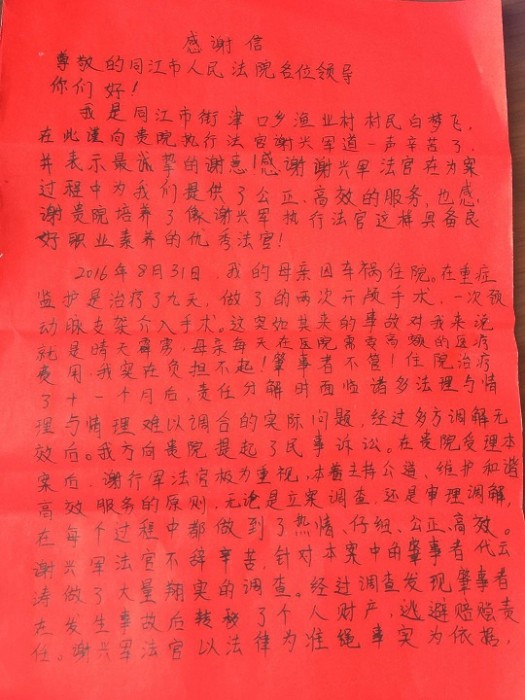 感谢信
尊敬的同江市人民法院各位领导
你们好！
我是同江市街津口乡渔业村村民白梦飞，
在此谨向贵院执行法官谢兴军道一声辛苦了，
并表示最诚挚的谢意！感谢谢兴军法官在为案
过程中为我们提供了公正、高效的服务，也感
谢贵院培养了像谢兴军执行法官这样具备良
好职业素养的优秀法官！
2016年8月31日，我的母亲因车祸住院。在重症
监护是治疗了九天，做了的两次开颅手术，一次颈
动脉支架介入手术。这突如其来的事故对我来说
就是晴天霹雳，母亲每天在医院需要高额的医疗
费用，我实在负担不起！肇事者不管！住院治疗
了十一个月后，责任分解时面临诸多法理与情
理与情理难以调合的实际问题，经过多方调解无
效后。我方向贵院提起了民事诉讼。在贵院受理本
案后，谢行军法官极为重视，本着生井介道、维护和谐
高效服务的原则，无论是立案调查，还是审理调解，
在每个过程中都做到了热情、仔细、公正、高效。
谢兴军法官不辞辛苦，针对本案中的肇事者代云
涛做了大量翔实的调查。经过调查发现肇事者
在发生事故后转移了个人财产，逃避赔偿责
任。谢兴军法官以法律为准绳事实为依据，